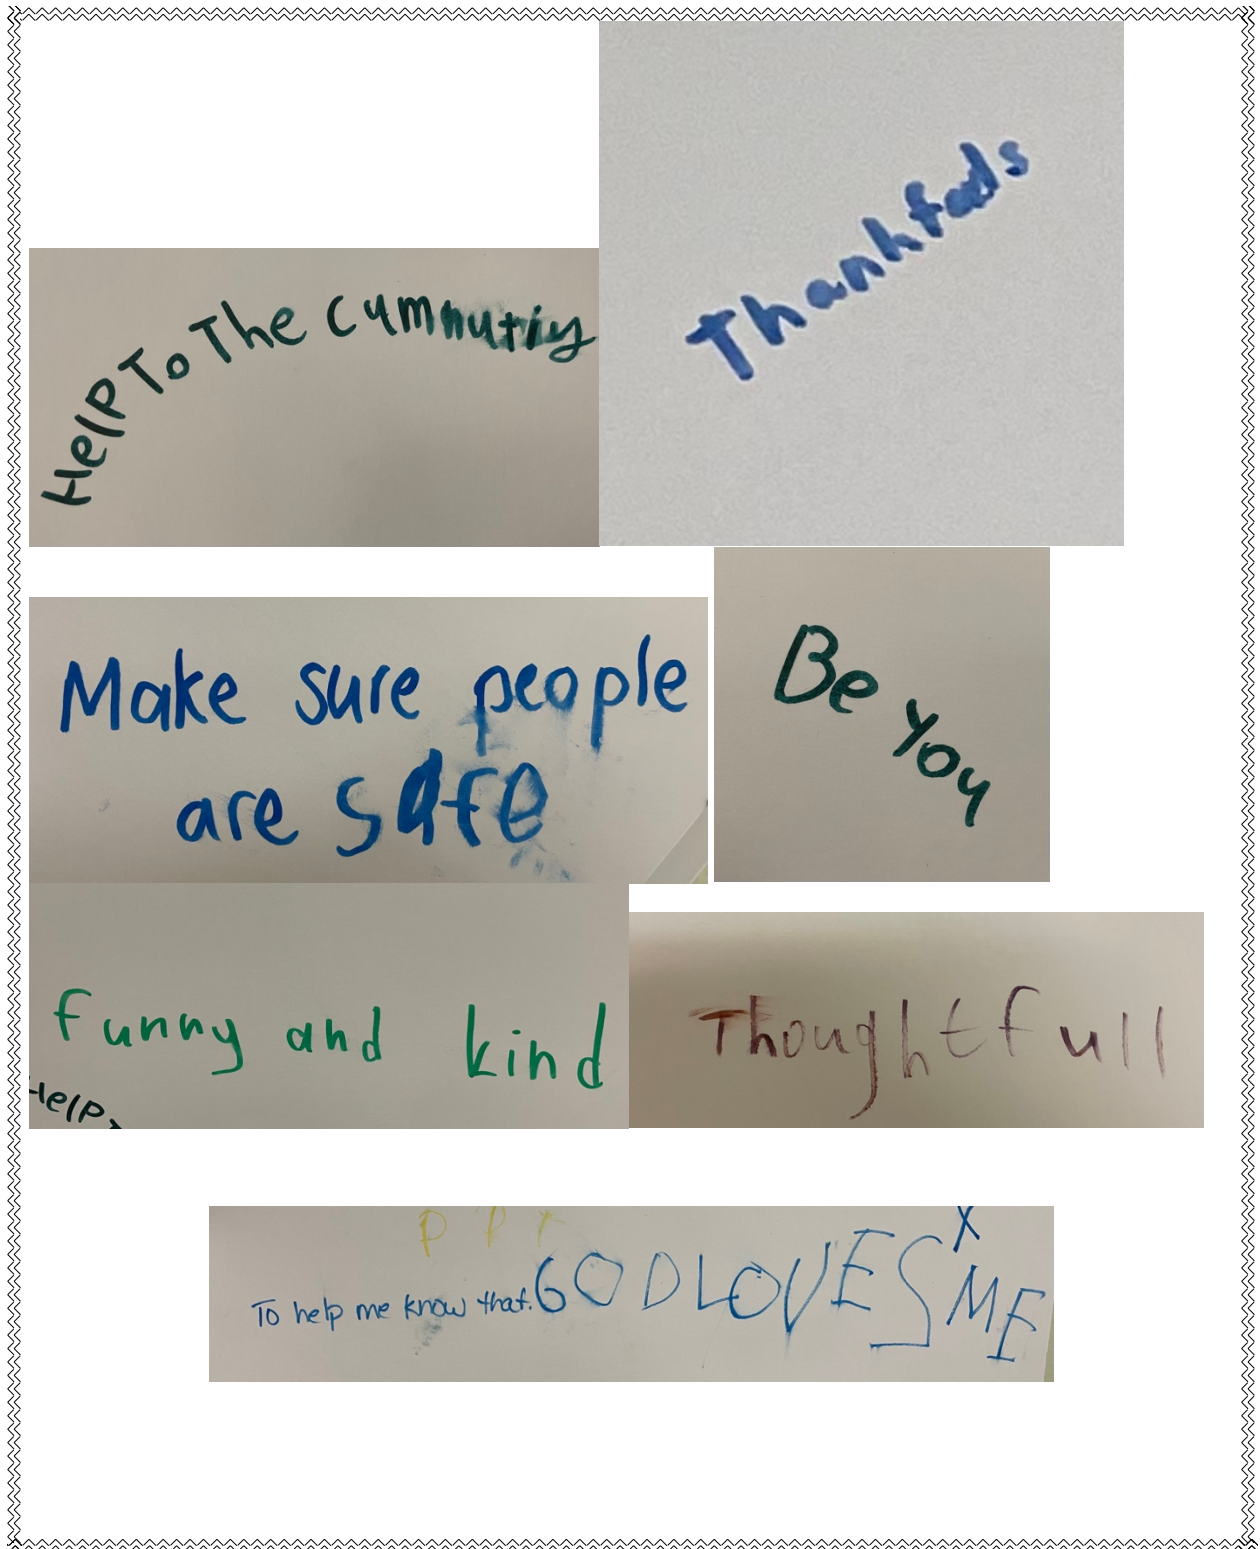 HelP To The cumnutiy
Thankfads
Make sure people
are safe
Be you
funny and kind
HelP
Thoughtfull
P P
To help me know that. GOD LOVES ME
X